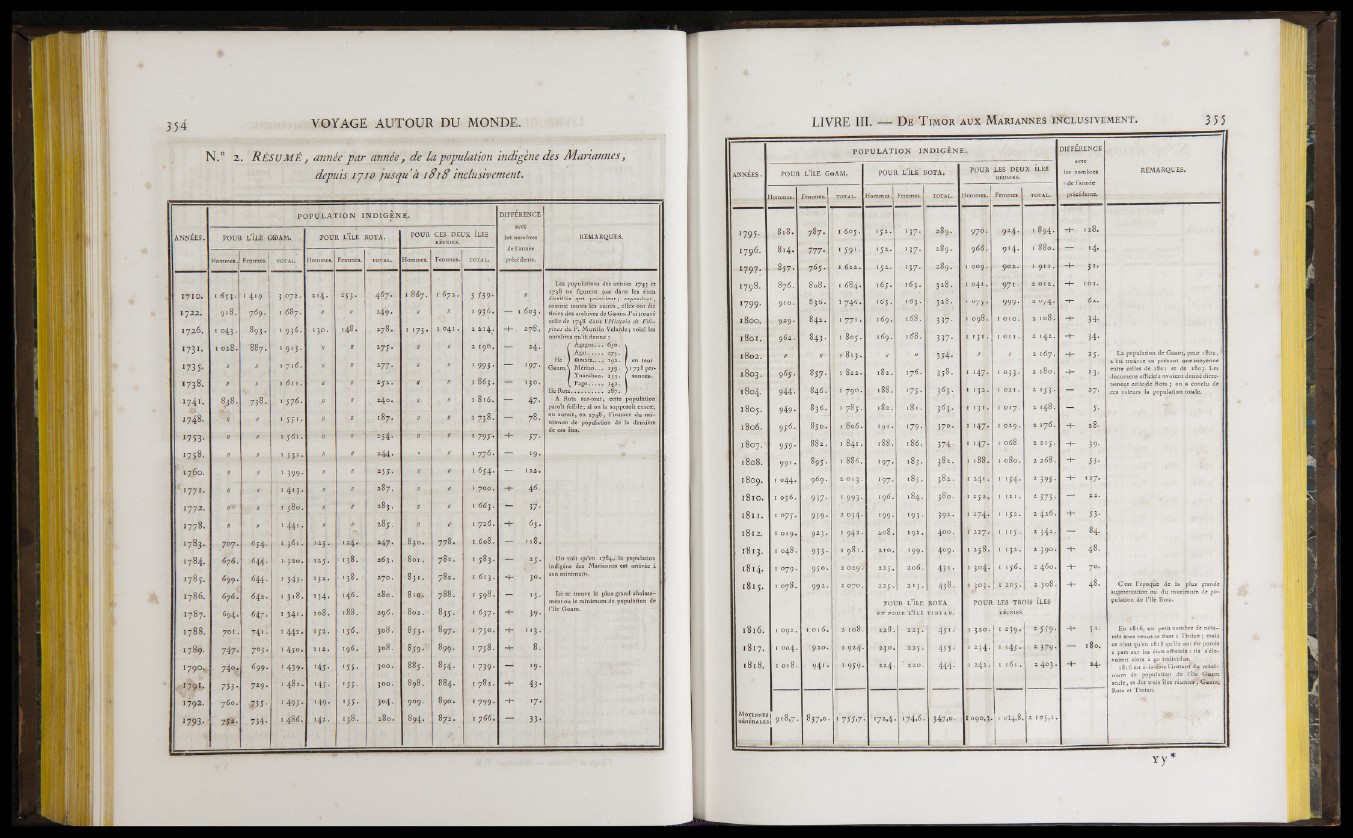 354 VOYAGE AUTOUR DU MONDE.
N.° 2. RÉSUMÉ, année par année, de la population indigène des Mariannes,
depuis 1710 jusqu'à 1818 inclusivement.
ANNÉES. POPULATION INDIGÈNE. DIFFÉRENCE avec les nombres de l'année précédente. REMARQUES.
POUR L'ÎLE GWAM. POUR L'ÎLE ROTA. POUR CES DEUX ÎLES RÉUNIES.
Hommes. Femmes. TOTAL. Hommes. Femmes. TOTAL. Hommes. Femmes. TOTAL.
1710. 1 653. 1 419 3 072. 214. 253. 467. 1 867. 1 672. 3 539. "
1722. 918. 769. 1 687. " " 249. " " 1 936. — 1 603.
1726. 1 043. 893. 1 936. 130. 148. 278. 1 173. 1 041. 2 214. + 278.
1731. 1 028. 887. 1 915. " " 275. " " 2 190. — 24.
1735. " " 1 716. " " 277. " " 1 993. — 197.
1738. " " 1 611. " " 252. " " 1 863. — 130.
1741. 838. 738. 1 576. " " 240. " " 1 816. — 47.
1748. " " 1 551. " " 187. " " 1 738. — 78.
1753. " " 1 561. " " 234. " " 1 795. + 57.
1758. " " 1 532. " " 244. " " 1 776. — 19.
1760. " " 1 399. " " 255. " " 1 654. — 122.
1771. " " 1 413. " " 287. " " 1 700. + 46.
1772. " " 1 380. " " 283. " " 1 663. — 37.
1778. " " 1 441. " " 285. " " 1 726. + 63.
1783. 707. 654. 1 361. 123. 124. 247. 830. 778. 1 608. — 118.
1784. 676. 644. 1 320. 125. 138. 263. 801. 782. 1 583. — 25.
1785. 699. 644. 1 343. 132. 138. 270. 831. 782. 1 613. + 30.
1786. 676. 642. 1 318. 134. 146. 280. 810. 788. 1 598. — 15.
1787. 694. 647. 1 341. 108. 188. 296. 802. 835. 1 637. + 39.
1788. 701. 741. 1 442. 152. 156. 308. 853. 897. 1 750. + 113.
1789. 747. 703. 1 450. 112. 196. 308. 859. 899. 1 758. + 8.
1790. 740. 699. 1 439. 145. 155. 300. 885. 854. 1 739. — 19.
1791. 753. 729. 1 482. 145. 155. 300. 898. 884. 1 782. + 43.
1792. 760. 735. 1 495. 149. 155. 304. 909. 890. 1 799. + 17.
1793. 752. 734. 1 486. 142. 138. 280. 894. 872. 1 766. — 33.
Les populations des années 1743 et
1758 ne figurent pas dans les états
détaillés qui précèdent; cependant,
comme toutes les autres, elles ont été
tirées des archives de Gwam. J'ai trouvé
celle de 1748 dans l'Historia de Fili-
pinas du P. Murillo Velarde; voici les
nombres qu'il donne:
Gwam.
Agagna.... 690.
Agat...... 275.
Umata.... 192.
Mérino.... 139.
Ynarahan. 153.
Pago..... 143.
Ile Rota.......... 287.
en tout 1 738 personnes.
A Rota sur-tout, cette population
paroît foible; si on la supposoit exacte,
on auroit, en 1748, l'instant du mi-
nimum de population de la dernière
de ces îles.
On voit qu'en 1784, la population
indigène des Mariannes est arrivée à
son minimum.
Ici se trouve le plus grand abaisse-
ment ou le minimum de population de
l'île Gwam.
LIVRE III. — DE TIMOR AUX MARIANNES INCLUSIVEMENT. 355
ANNÉES. POPULATION INDIGÈNE. DIFFÉRENCE avec les nombres de l'année précédente. REMARQUES.
POUR L'ÎLE GWAM. POUR L'ÎLE ROTA. POUR LES DEUX ÎLES RÉUNIES.
Hommes. Femmes. TOTAL. Hommes. Femmes. TOTAL. Hommes. Femmes. TOTAL.
1795. 818. 787. 1 605. 152. 137. 289. 970. 924. 1 894. + 128.
1796. 814. 777. 1 591. 152. 137. 289. 966. 914. 1 880. — 14.
1797. 857. 765. 1 622. 152. 137. 289. 1 009. 902. 1 911. + 31.
1798. 876. 808. 1 684. 165. 163. 328. 1 041. 971. 2 012. + 101.
1799. 910. 836. 1 746. 165. 163. 328. 1 075. 999. 2 074. + 62.
1800. 929. 842. 1 771. 169. 168. 337. 1 098. 1 010. 2 108. + 34.
1801. 962. 843. 1 805. 169. 168. 337. 1 131. 1 011. 2 142. + 34.
1802. " " 1 813. " " 354. " " 2 167. + 25.
1803. 965. 857. 1 822. 182. 176. 358. 1 147. 1 033. 2 180. + 13.
1804. 944. 846. 1 790. 188. 175. 363. 1 132. 1 021. 2 153. — 27.
1805. 949. 836. 1 785. 182. 181. 363. 1 131. 1 017. 2 148. — 5.
1806. 956. 850. 1 806. 191. 179. 370. 1 147. 1 029. 2 176. + 28.
1807. 959. 882. 1 841. 188. 186. 374. 1 147. 1 068 2 215. + 39.
1808. 991. 895. 1 886. 197. 185. 382. 1 188. 1 080. 2 268. + 53.
1809. 1 044. 969. 2 013. 197. 185. 382. 1 241. 1 154. 2 395. + 127.
1810. 1 056. 937. 1 993. 196. 184. 380. 1 252. 1 121. 2 373. — 22.
1811. 1 075. 959. 2 034. 199. 193. 392. 1 274. 1 152. 2 426. + 53.
1812. 1 019. 923. 1 942. 208. 192. 400. 1 227. 1 115. 2 342. — 84.
1813. 1 048. 933. 1 981. 210. 199. 409. 1 258. 1 132. 2 390. + 48.
1814. 1 079. 950. 2 029. 225. 206. 431. 1 304. 1 156. 2 460. + 70.
1815. 1 078. 992. 2 070. 225. 213. 438. 1 303. 1 205. 2 508. + 48.
POUR L'ÎLE ROTA ET POUR L'ÎLE TINIAN. POUR LES TROIS ÎLES RÉUNIES.
1816. 1 092. 1 016. 2 108. 228. 223. 451. 1 320. 1 239. 2 559. + 51.
1817. 1 004. 920. 1 924. 230. 225. 455. 1 234. 1 145. 2 379. — 180.
1818. 1 018. 941. 1 959. 224. 220. 444. 1 242. 1 161. 2 403. + 24.
MOYENNES GÉNÉRALES 918,7. 837,0. 1 755,7. 172,4. 174,6. 347,0. 1 090,3. 1 014,8. 2 105,1.
La population de Gwam, pour 1802,
a été trouvée en prenant une moyenne
entre celles de 1801 et de 1803. Les
documens officiels avoient donné direc-
tement celle de Rota; on a conclu de
ces valeurs la population totale.
C'est l'époque de la plus grande
augmentation ou du maximum de po-
pulation de l'île Rota.
En 1816, un petit nombre de natu-
rels sont venus se fixer à Tinian; mais
ce n'est qu'en 1818 qu'ils ont été portés
à part sur les états officiels: ils s'éle-
voient alors à 40 individus.
1816 est à-la-fois l'instant du maxi-
mum de population de l'île Gwam
seule, et des trois îles réunies, Gwam,
Rota et Tinian.
Yy*